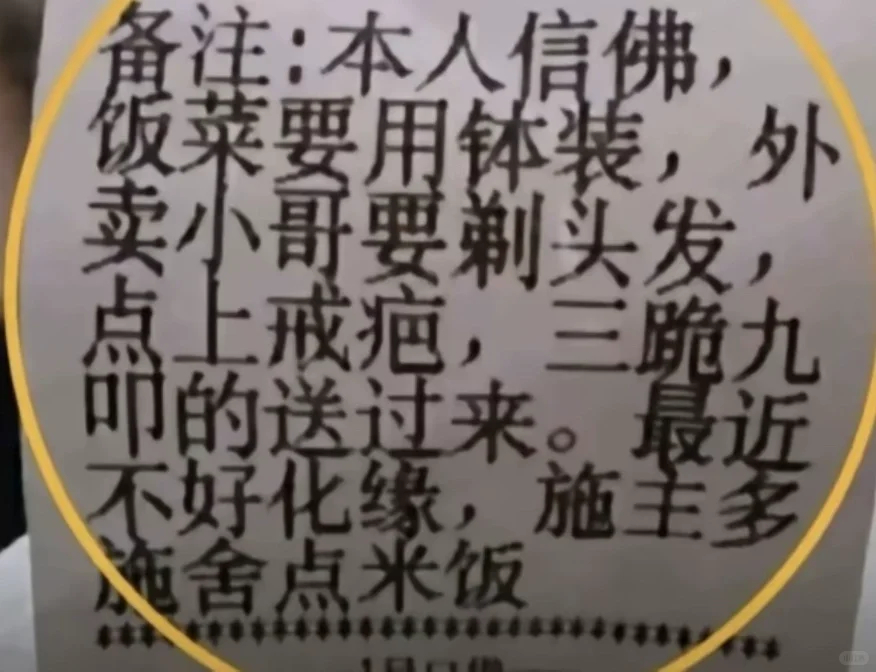 备注:本人信佛,
饭菜要用钵装,外
卖小哥要剃头发,
点上戒疤,三跪九
叩的送过来。最近
不好化缘,施主多
施舍点米饭
********************************